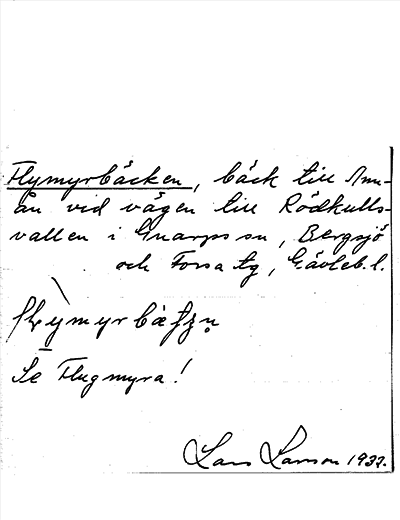 Flymyrbäcken, bäck till Ann-
ån vid vägen till Rödkulls-
vallen i Gnarps sn, Bergsjö
och Forsa tg, Gävleb. l.
Se Flugmyra!
Lars Larsson 1937.